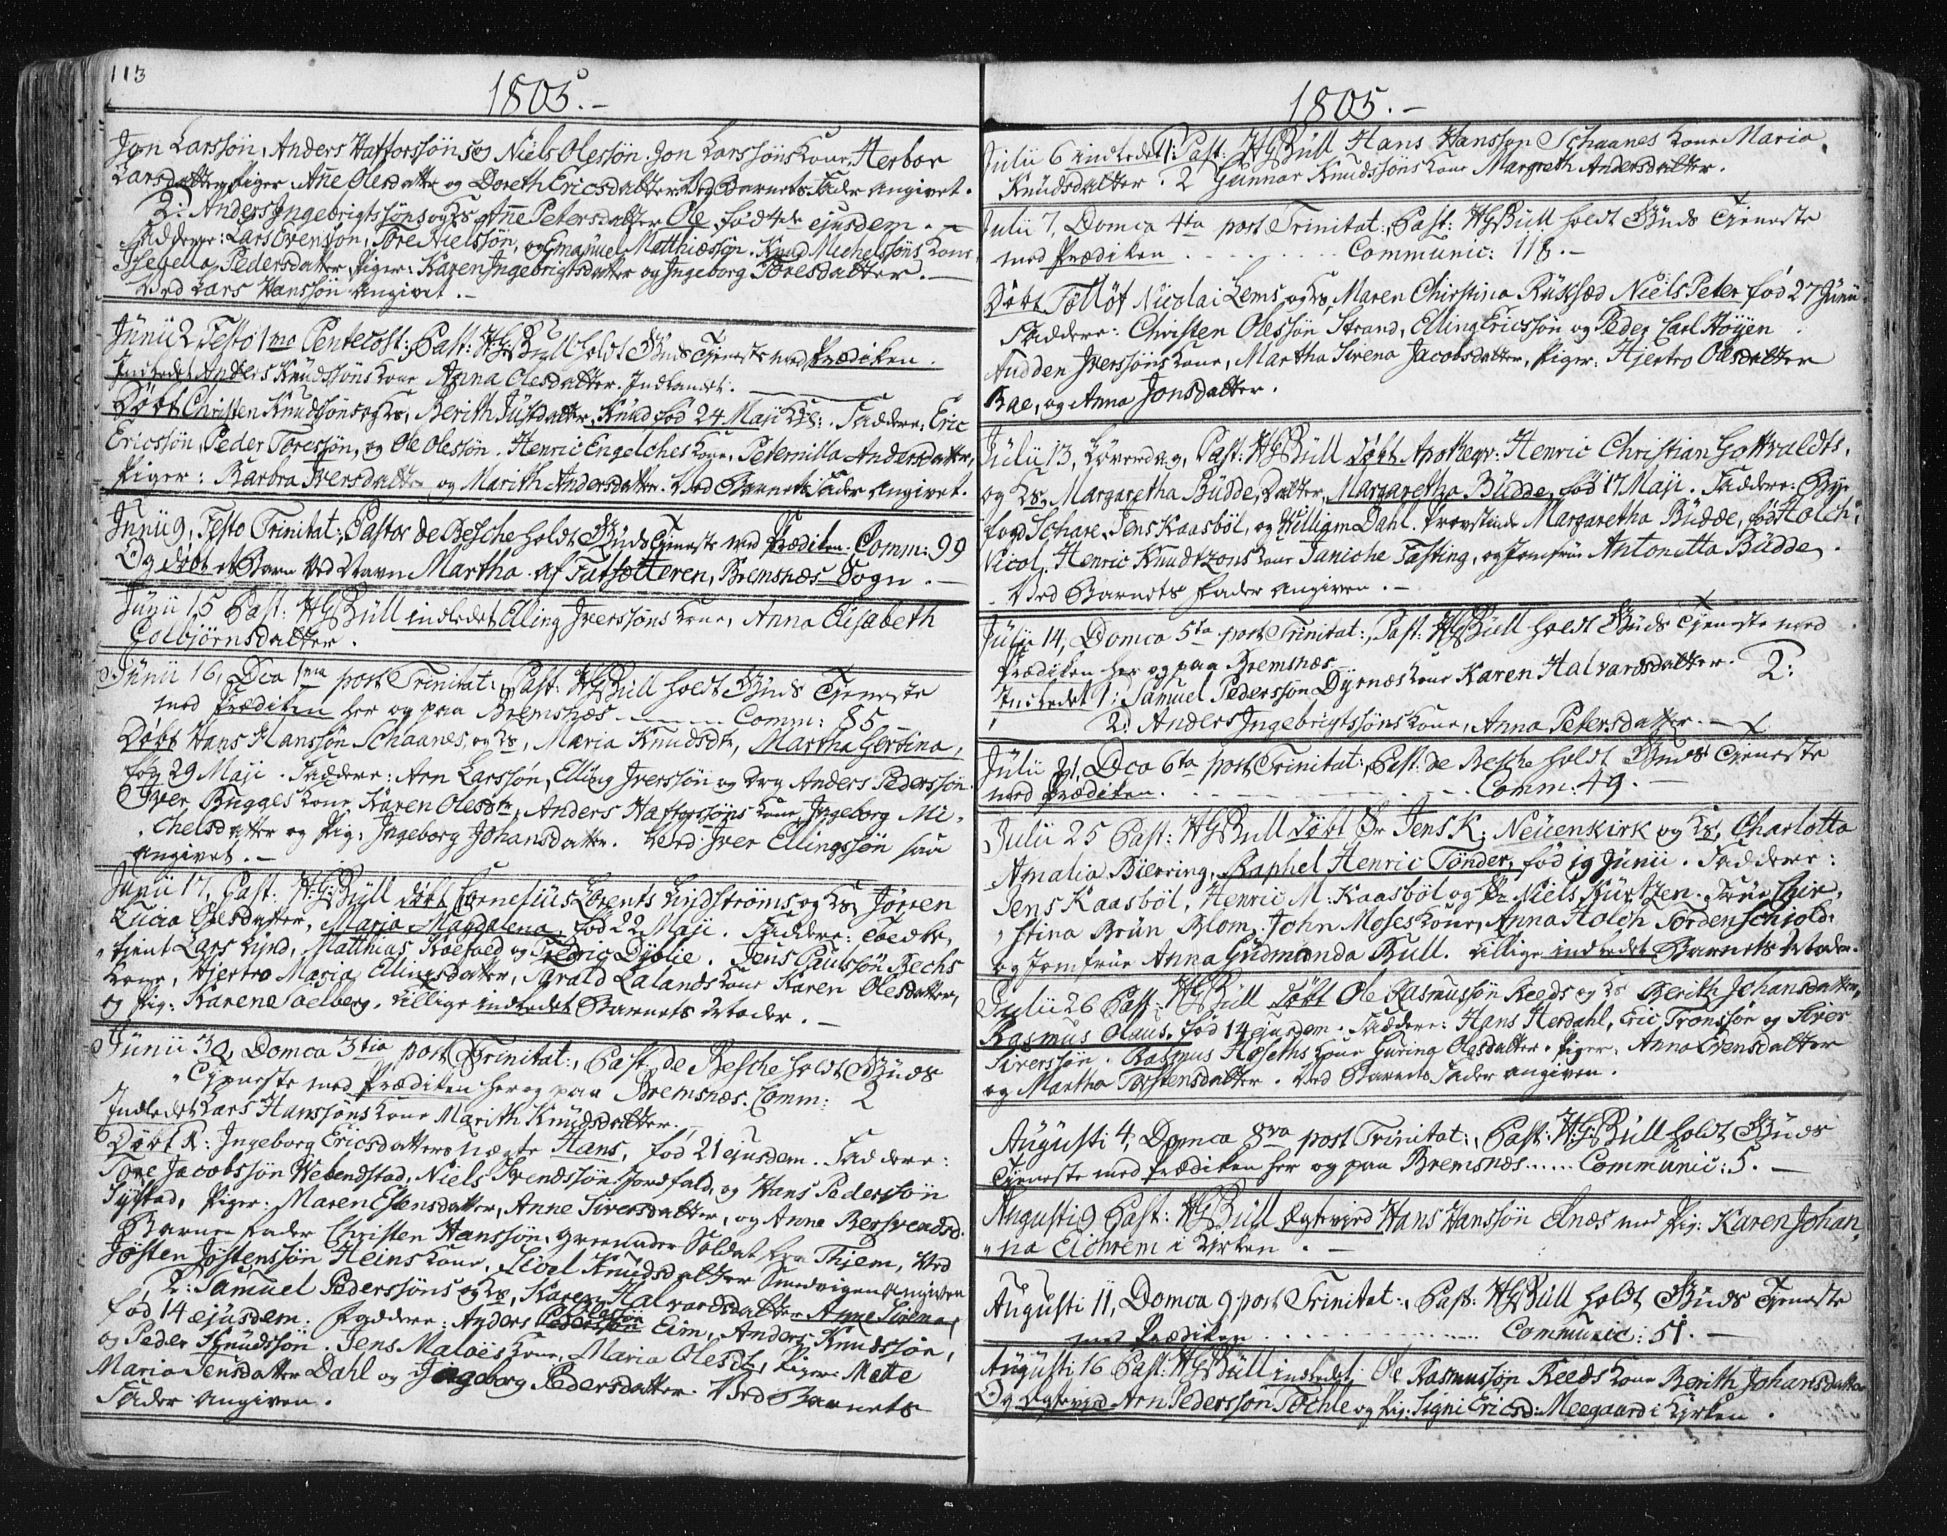 113
1805.-
Jon Larssøn, Anders Hafforssøn og Niels Olessøn. Jon Larssøns Kone, Herbor
Larsdatter, Piger Anne Olsdattr og Doreth Ericsdatter. Ved Barnets Fader Angivet.
2: Anders Ingebrigtssøns og Hs Anne Petersdatter Ole. fød 4de ejusdem. -
Faddere: Lars Evenssøn, Tore Nielssøn, og Emanuel Matthiæssøn. Knud Michelssøns Kone
Isebella Pedersdatter, Piger: Karen Ingebrigtsdatter og Ingeborg Toresdatter. -
Ved Lars Hanssøn Angivet. -
Junii 2, Festo 1mo Pentecost:, Past: HG Bull holdt Guds Tjeneste med Prædiken.
Indledet Anders Knudssøns Kone Anna Olesdatter. Indlandet.
Døbt Christen Knudssøns og Hs, Berith Justdatter, Knud fød 24 Maji. Faddere: Eric
Ericssøn, Peder Toressøn, og Ole Olessøn. Henric Engelches Kone, Peternilla Andersdatter,
Piger: Barbra Iversdatter og Marith Andersdatter. Ved Barnets Fader Angivet.
Junii 9, Festo Trinitat:, Pastor de Besche holdt Guds Tjeneste med Prædiken. Comm: 99
Og døbt et Barn ved Navn Martha af Futsætteren, Bremsnæs Sogn. -
Junii 15 Past: HG Bull indledet Elling Iverssøns Kone, Anna Elisabeth
Colbjørnsdatter.
Junii 16, Dca 1ma post Trinitat:, Past: HG Bull holdt Guds Tjeneste
med Prædiken her og paa Bremsnæs - Comm: 85 -
Døbt Hans Hanssøn Schaanes, og Hs, Maria Knudsdtr, Martha Gerbina,
fød 29 Maji. Faddere: Arn Larssøn, Elling Iverssøn og Anders Pederssøn.
Iver Bugges Kone, Karen Olesdtr, Anders Hafforssøns Kone, Ingeborg Mi-
chelsdatter og Pig: Ingeborg Johansdatter. Ved Iver Ellingssøn saa
Angivet. -
Junii 17, Past: HG Bull døbt Cornelius Lorents Lindstrøms og Hs, Jørren
Lucia Olesdatter, Maria Magdalena, fød 22 Maji. Faddere:
Lars Lind, Matthias Koefoed og Fredric Dyblie. Jens Paulssøn Bechs
Kone, Hjertro Maria Ellingsdatter, Harald Lalands Kone Karen Olesdatter,
og Pig: Karene Soelberg. tillige indledet Barnets Moder. -
Junii 30, Domca 3tia post Trinitat:, Past de Besche holdt Guds
Tjeneste med Prædiken her og paa Bremsnæs. Comm: 2
Indledet Lars Hanssøns Kone Marith Knudsdatter.
Døbt 1: Ingeborg Ericsdatters uægte Hans, fød 21 ejusdem. Faddere:
Tore Jacobssøn Hebendstad, Niels Svendssøn Fjordfald, og Hans Pederssøn
Systad, Piger: Maren Estensdatter, Anne Siversdatter, og Anne Bersvendsd.
Barnen Fader Christen Hanssøn, grenader Soldat fra Thjem, Ved
Jøsten Jøstenssøn Heins Kone, Sivel Knudsdatter Smedvigen Angiven
2: Samuel Pederssøns og Hs, Karen Halvardsdatter Anne Sirena,
fød 14 ejusdem. Faddere: Anders Eim, Anders Knudssøn,
og Peder Knudssøn. Jens Maloes Kone, Maria Olesdtr, Piger: Mette
Maria Jensdatter Dahl og Ingeborg Pedersdatter. Ved Barnets
Fader Angiven.
1805.-
Julii 6 indledet 1: Past: HG Bull Hans Hanssøn Schaanes Kone Maria
Knudsdatter. 2 Gunnar Knudssøns Kone Margreth Andersdatter.
Julii 7, Domca 4ta post Trinitat:, Past: HG Bull holdt Guds Tjeneste
med Prædiken . . . . . . . . Communic: 118. -
Døbt Tolløf Nicolai Lems og Hs, Maren Chirstina Riksæd Niels Peter fød 27 Junii
Faddere: Christen Olessøn Strand, Elling Ericssøn og Peder Carl Høyen
Audden Iverssøns Kone, Martha Sirena Jacobsdatter, Piger: Hjertro Olesdatter
Bae, og Anna Jonsdatter.
Julii 13, Løverdag, Past: HG Bull døbt Apotheqr: Henric Christian Gottvaldts,
og Hs, Margaretha Budde, Datter, Margaretha Budde, fød 17 Maji. Faddere: Bye
foged Schare, Jens Kaasbøl, og William Dahl. Provstinde Margaretha Budde, fød Holch:
Nicol. Henric Knudtzons Kone Taniche Fasting, og Jomfrue Antonetta Budde.
Ved Barnets Fader Angiven. -
Julii 14, Domca 5ta post Trinitat:, Past: HG Bull holdt Guds Tjeneste med
Prædiken her og paa Bremsnæs - 2:
Indledet 1: Samuel Pederssøn Dyrnæs Kone Karen Halvardsdatter.
2: Anders Ingebrigtssøns Kone, Anna Petersdatter. -
Julii 21, Dca 6ta post Trinitat:, Past: de Besche holdt Guds Tjeneste
med Prædiken. . . . . . . . Comm: 49.
Julii 25 Past: HG Bull døbt Sr Jens K: Neuenkirk og Hs, Charlotta
Amalia Bierring, Raphel Henric Tønder, fød 19 Junii. Faddere:
Jens Kaasbøl, Henric M: Kaasbøl og Sr Niels Kurtzen. Frue Chir-
stina Brun Blom, John Moses Kone, Anna Holch Tordenschiold:
og Jomfrue Anna Gudmunda Bull. tillige indledet Barnets Moder.
Julii 26 Past: HG Bull døbt Ole Rasmussøn Reeds og Hs Berith Johansdatter,
Rasmus Olaus. fød 14 ejusdem. Faddere: Hans Herdahl, Eric Tronssøn og Siver
Siverssøn. Rasmus Hoseths Kone Guring Olesdatter. Piger: Anna Evensdatter
og Martha Torstensdatter. Ved Barnets Fader angiven.
Augusti 4. Domca 8va post Trinitat:, Past: HG Bull holdt Guds
Tjeneste med Prædiken her og paa Bremsnæs...... Communic: 5. -
Augusti 9 Past: HG Bull Egtevied Hans Hanssøn Elnæs med Pig: Karen Johan-
na Eichrem i Kirken. -
Augusti 11, Domca 9 post Trinitat:, Past: HG Bull holdt Guds Tjeneste
med Prædiken . . . . . . . . Communic: 51. -
Augusti 16 Past: HG Bull indledet Ole Rasmussøn Reeds Kone Berith Johansdatter
Og Egtevied Arn Pederssøn Tøchle og Pig: Signi Ericsd: Meegaard i Kirken.